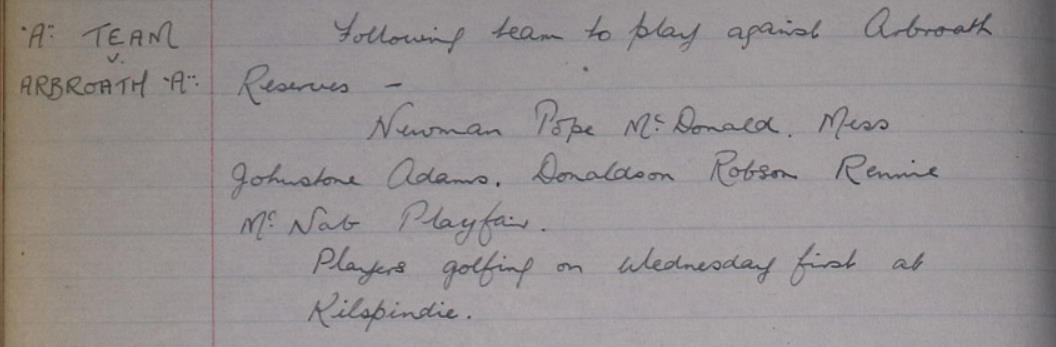 "A" TEAM
v.
ARBROATH "A".
Following team to play against Arbroath
Reserves —
Newman Pope McDonald. Mess
Johnstone Adams. Donaldson Robson Rennie
McNab Playfair.
Players golfing on Wednesday first at
Kilspindie.